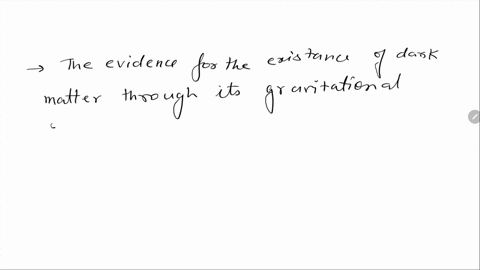 → The evidence for the existance of dark
matter through its gravitational